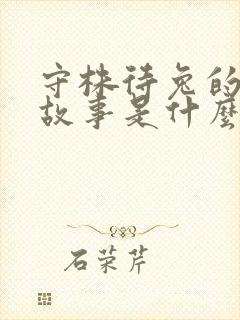 守株待兔的
故事是什麼
石荣芹